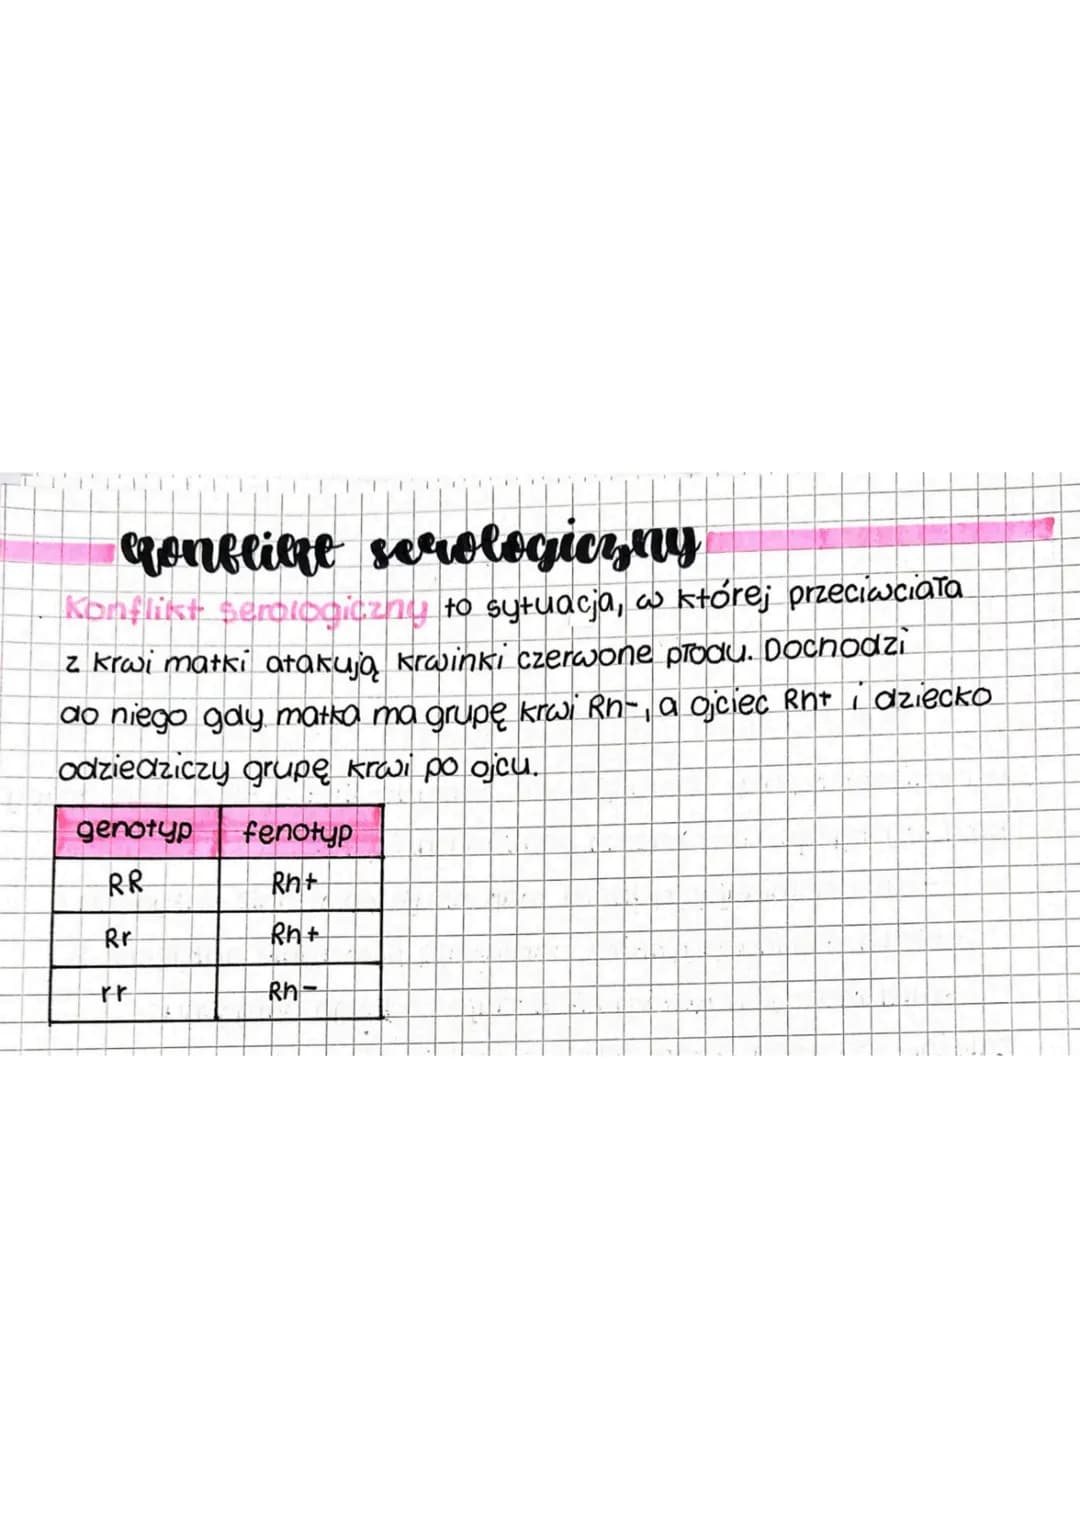 konflikt serologiczny
Konflikt serologiczny to sytuacja, w której przeciwciała
z krwi matki atakują krwinki czerwone płodu. Dochodzi
do niego gdy matka ma grupę krwi Rh-, a ojciec Rh+ i dziecko
odziedziczy grupę krwi po ojcu.
genotyp fenotyp
RR Rh+
Rr Rh+
rr Rh-